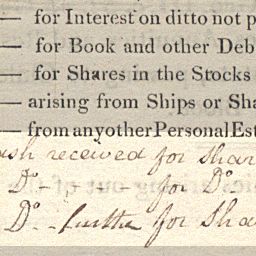 — for Interest on ditto not p
— for Book and other Deb
— for Shares in the Stocks
— arising from Ships or Sha
— from any other Personal Est
ash received for Shar
Do - for Do
Do - further for Sha